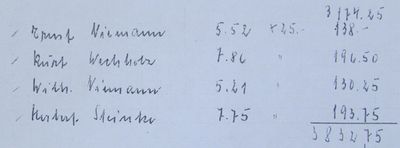 3174.25
Ernst Niemann 5.52 × 25.- 138.-
Kurt 7.86 " 196.50
Wilh. Niemann 5.21 " 130.25
Herbert Steinke 7.75 " 193.75
3832,75